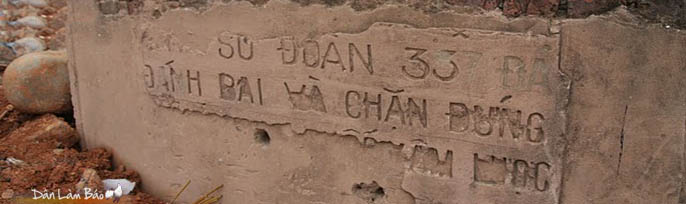 SƯ ĐOÀN 337 ĐÃ
ĐÁNH BẠI VÀ CHẶN ĐỨNG
XÂM LƯỢC
Dân Làm Báo